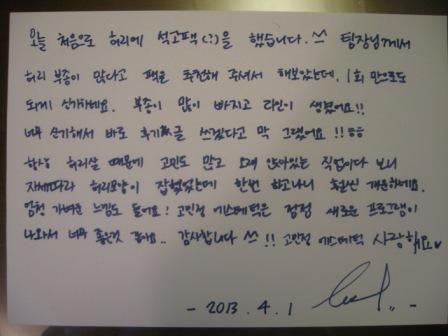 오늘 처음으로 허리에 석고팩(?)을 했습니다. ^^ 팀장님께서
허리 부종이 많다고 팩을 추천해 주셔서 해보았는데, 1회 만으로도
되게 신기하네요. 부종이 많이 빠지고 라인이 생겼어요!!
너무 신기해서 바로 후기글 쓰겠다고 막 그랬어요!! ㅎㅎ
항상 허리살 때문에 고민도 많고 오래 앉아있는 직업이다 보니
허리모양이 잡혔었는데 한번 하고나니 훨씬 개운하네요.
엄청 가벼운 느낌도 들어요! 고민정 에스테틱은 점점 새로운 프로그램이
나와서 너무 좋은것 같아요.. 감사합니다 ^^!! 고민정 에스테틱 사랑해요♥
- 2013. 4. 1 -